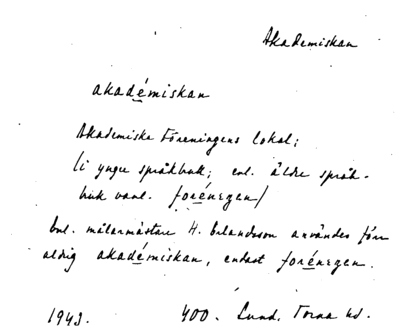 Akademiskan
akadémiskan
Akademiska Föreningens lokal;
(i yngre språkbruk; enl. äldre språk-
bruk vanl. forénegen)
Enl. målarmästare H. Erlandsson användes förr
aldrig akadémiskan, endast forénegen.
1943. 400. Lund, Torna hd.